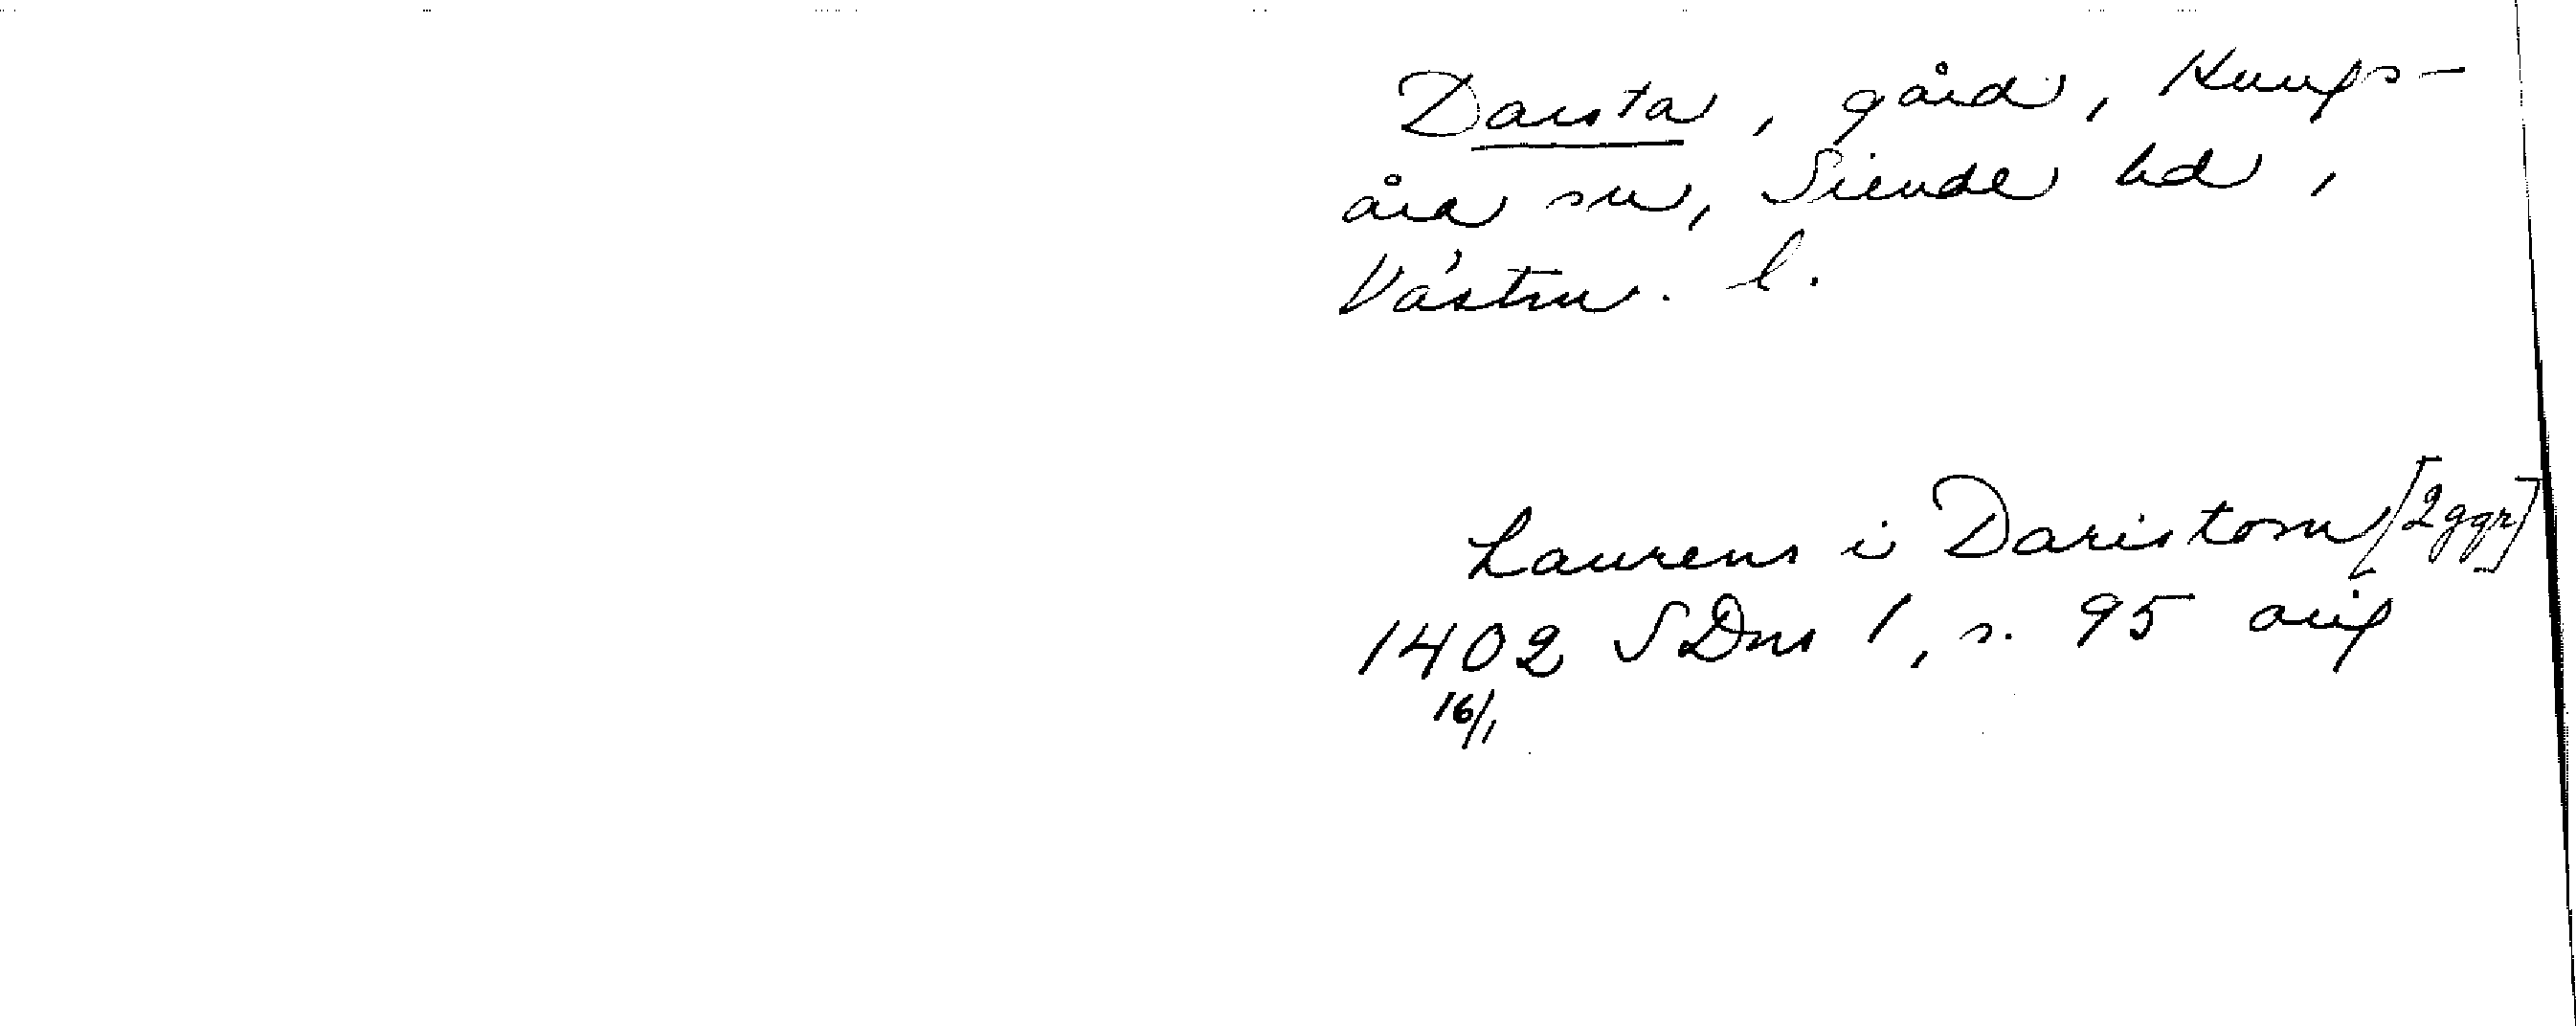 Darsta, gård, Kungs-
åra sn, Siende hd,
Västm. l.
Laurens i Daristom [2 ggr]
1402 SDns 1, s. 95 orig
16/1